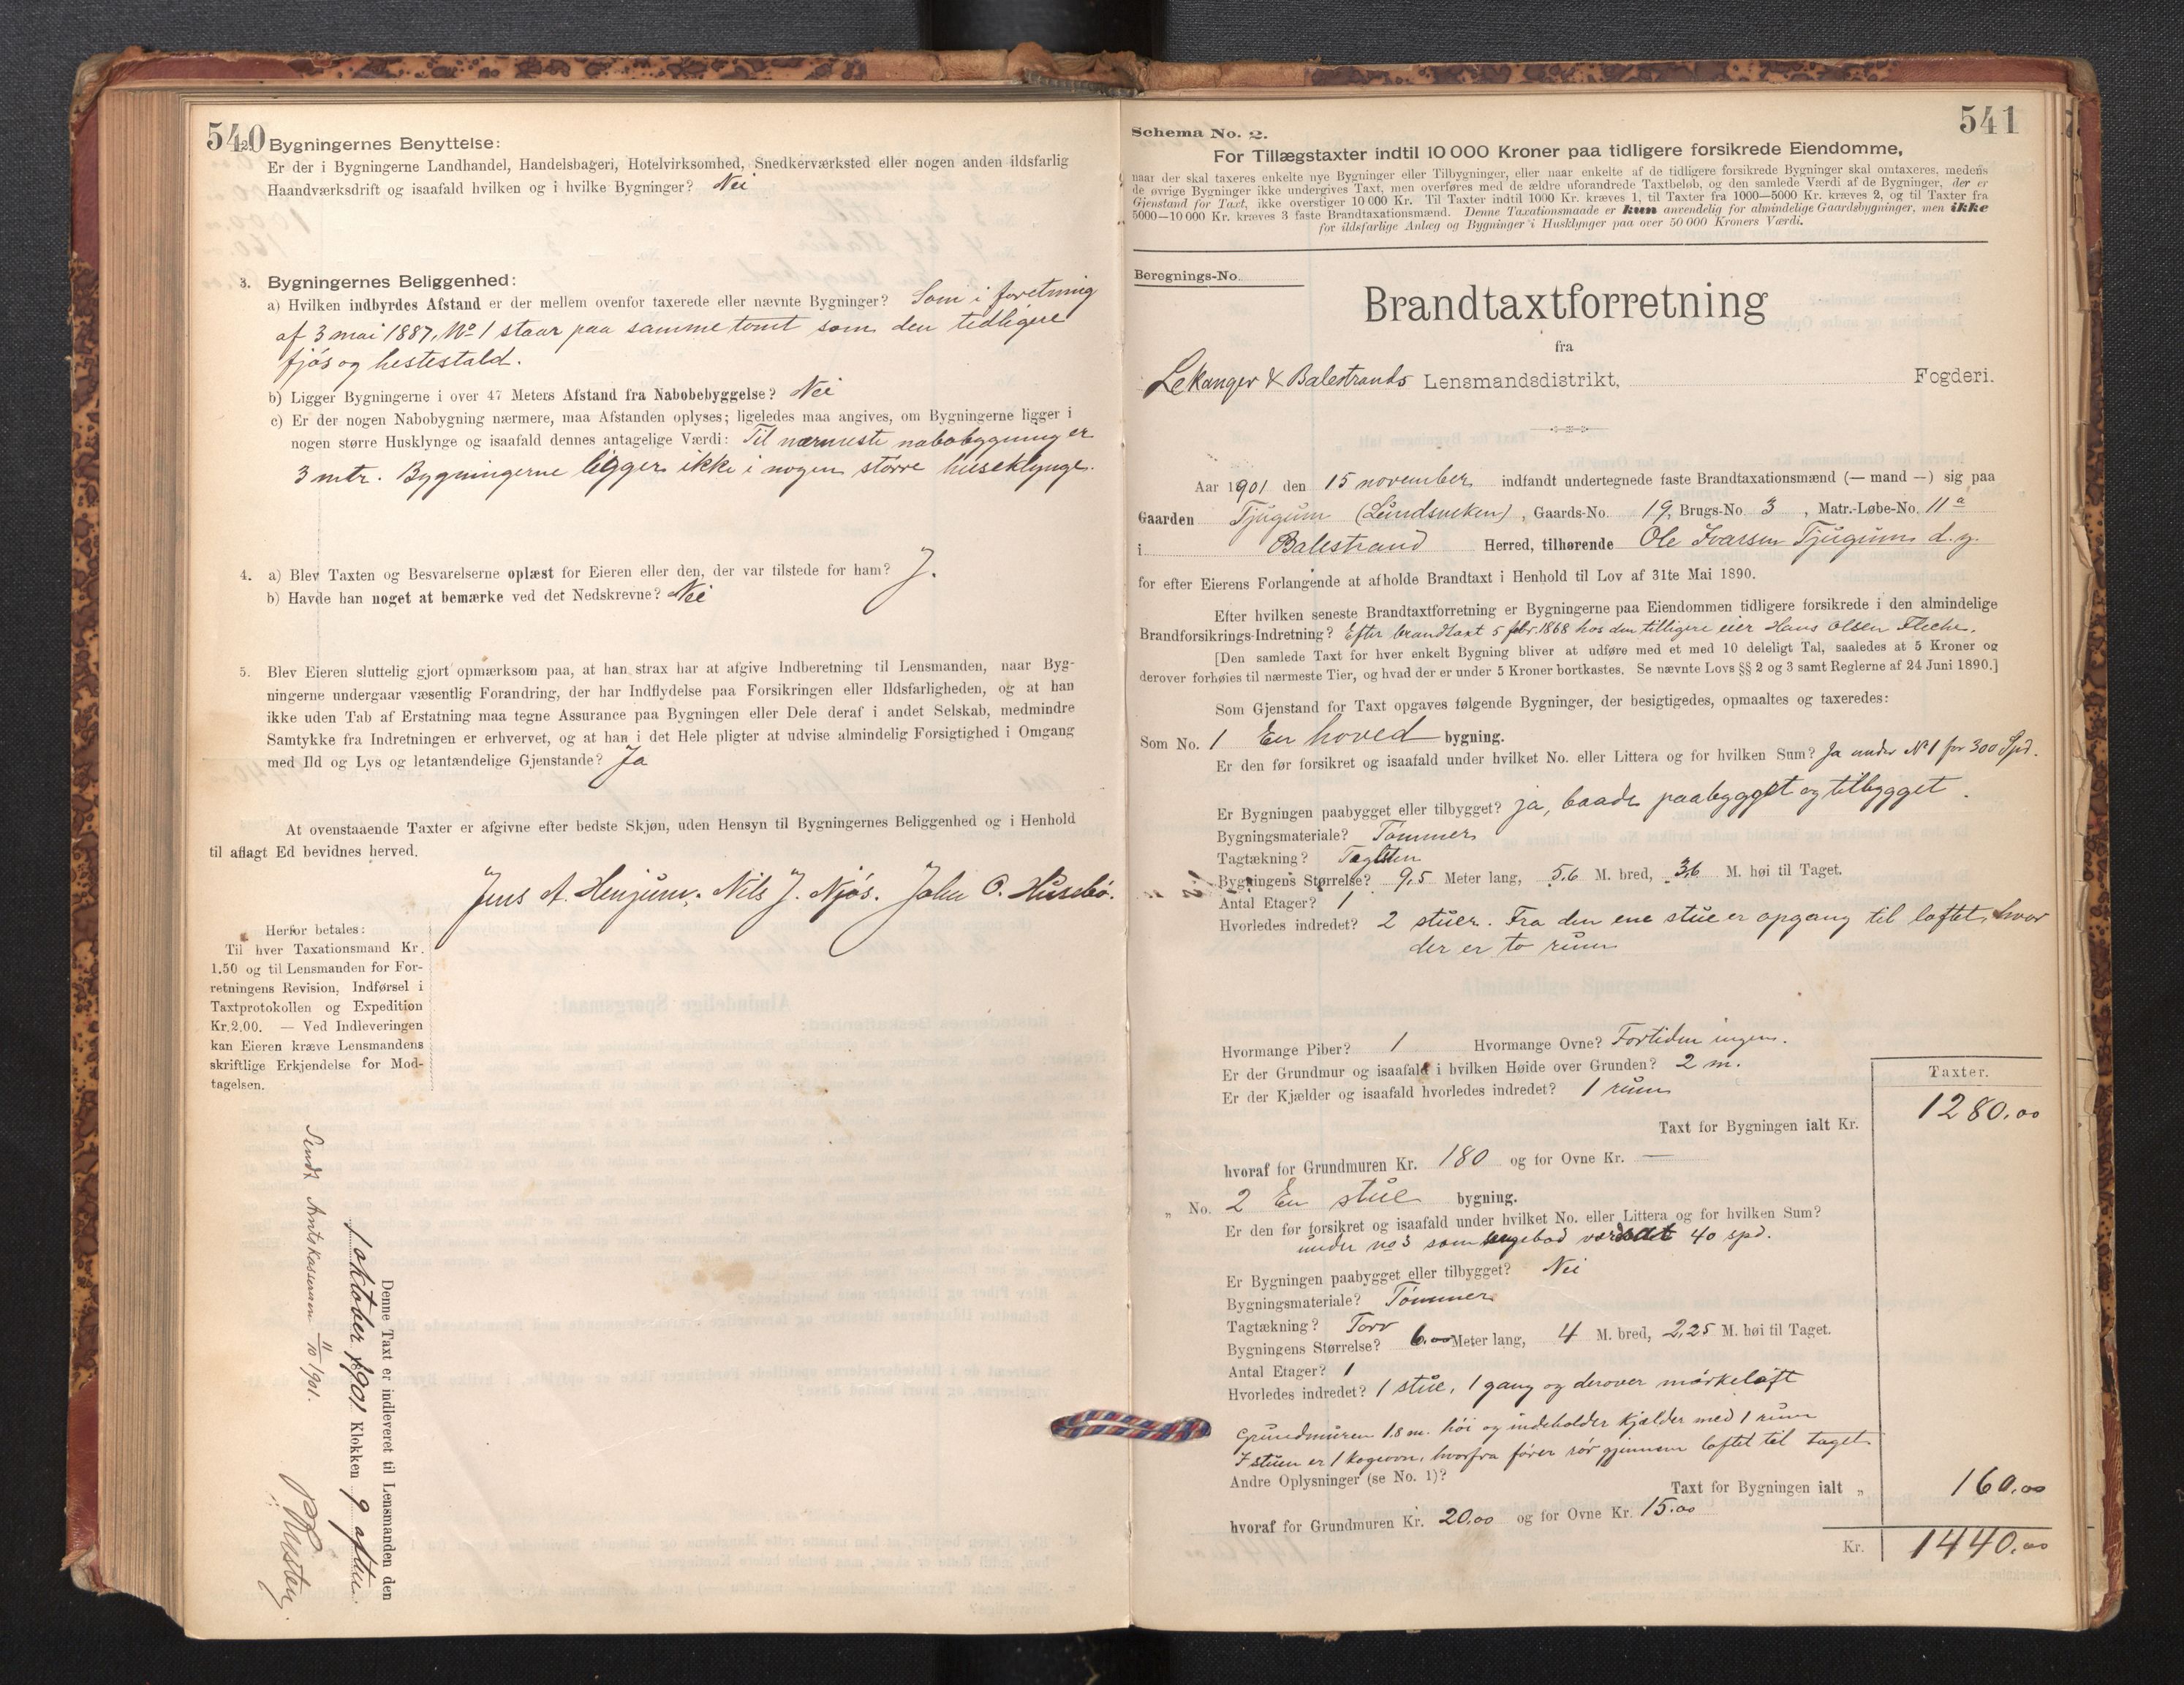 540
2. Bygningernes Benyttelse:
Er der i Bygningerne Landhandel, Handelsbageri, Hotelvirksomhed, Snedkerværksted eller nogen anden ildsfarlig
Haandværksdrift og isaafald hvilken og i hvilke Bygninger? Nei
3. Bygningernes Beliggenhed:
a) Hvilken indbyrdes Afstand er der mellem ovenfor taxerede eller nævnte Bygninger? Som i forretning
af 3 mai 1887, No 1 staar paa samme tomt som den tidligere
fjøs og hestestald.
b) Ligger Bygningerne i over 47 Meters Afstand fra Nabobebyggelse? Nei
c) Er der nogen Nabobygning nærmere, maa Afstanden oplyses; ligeledes maa angives, om Bygningerne ligger i
nogen større Husklynge og isaafald dennes antagelige Værdi: Til nærmeste nabobygning er
3 mtr. Bygningerne ligger ikke i nogen større huseklynge.
4. a) Blev Taxten og Besvarelserne oplæst for Eieren eller den, der var tilstede for ham? J.
b) Havde han noget at bemærke ved det Nedskrevne? Nei
5. Blev Eieren sluttelig gjort opmærksom paa, at han strax har at afgive Indberetning til Lensmanden, naar Byg-
ningerne undergaar væsentlig Forandring, der har Indflydelse paa Forsikringen eller Ildsfarligheden, og at han
ikke uden Tab af Erstatning maa tegne Assurance paa Bygningen eller Dele deraf i andet Selskab, medmindre
Samtykke fra Indretningen er erhvervet, og at han i det Hele pligter at udvise almindelig Forsigtighed i Omgang
med Ild og Lys og letantændelige Gjenstande? Ja
At ovenstaaende Taxter er afgivne efter bedste Skjøn, uden Hensyn til Bygningernes Beliggenhed og i Henhold
til aflagt Ed bevidnes herved.
Jens A. Henjum. Nils J. Njøs. John O. Husebø.
Herfor betales:
Til hver Taxationsmand Kr.
1.50 og til Lensmanden for For-
retningens Revision, Indførsel i
Taxtprotokollen og Expedition
Kr. 2.00. — Ved Indleveringen
kan Eieren kræve Lensmandens
skriftlige Erkjendelse for Mod-
tagelsen.
Denne Taxt er indleveret til Lensmanden den
1 oktober 1901 Klokken 9 aften.
Sendt Amtskassereren 11/10 1901.
541
Schema No. 2.
For Tillægstaxter indtil 10 000 Kroner paa tidligere forsikrede Eiendomme,
naar der skal taxeres enkelte nye Bygninger eller Tilbygninger, eller naar enkelte af de tidligere forsikrede Bygninger skal omtaxeres, medens
de øvrige Bygninger ikke undergives Taxt, men overføres med de ældre uforandrede Taxtbeløb, og den samlede Værdi af de Bygninger, der er
Gjenstand for Taxt, ikke overstiger 10 000 Kr. Til Taxter indtil 1000 Kr. kræves 1, til Taxter fra 1000—5000 Kr. kræves 2, og til Taxter fra
5000—10 000 Kr. kræves 3 faste Brandtaxationsmænd. Denne Taxationsmaade er kun anvendelig for almindelige Gaardsbygninger, men ikke
for ildsfarlige Anlæg og Bygninger i Husklynger paa over 50 000 Kroners Værdi.
Beregnings-No.
Brandtaxtforretning
fra
Lekanger & Balestrands Lensmandsdistrikt, Fogderi.
Aar 1901 den 15 november indfandt undertegnede faste Brandtaxationsmænd (— mand —) sig paa
Gaarden Tjugum (Lundsviken), Gaards-No. 19, Brugs-No 3, Matr.-Løbe-No. 11a
i Balestrand Herred, tilhørende Ole Ivarsen Tjugum d.y.
for efter Eierens Forlangende at afholde Brandtaxt i Henhold til Lov af 31te Mai 1890.
Efter hvilken seneste Brandtaxtforretning er Bygningerne paa Eiendommen tidligere forsikrede i den almindelige
Brandforsikrings-Indretning? Efter brandtaxt 5 febr. 1868 hos den tilligere eier Hans Olsen Fleche.
[Den samlede Taxt for hver enkelt Bygning bliver at udføre med et med 10 deleligt Tal, saaledes at 5 Kroner og
derover forhøies til nærmeste Tier, og hvad der er under 5 Kroner bortkastes. Se nævnte Lovs §§ 2 og 3 samt Reglerne af 24 Juni 1890.]
Som Gjenstand for Taxt opgaves følgende Bygninger, der besigtigedes, opmaaltes og taxeredes:
Som No. 1 En hoved bygning.
Er den før forsikret og isaafald under hvilket No. eller Littera og for hvilken Sum? Ja under No 1 for 300 Spd.
Er Bygningen paabygget eller tilbygget? ja, baade paabygget og tilbygget.
Bygningsmateriale? Tømmer
Tagtækning? Taglsten
Bygningens Størrelse? 9,5 Meter lang, 5,6 M. bred, 3,6 M. høi til Taget.
Antal Etager? 1
Hvorledes indredet? 2 stuer. Fra den ene stue er opgang til loftet, hvor
der er to rum
Hvormange Piber? 1 Hvormange Ovne? Fortiden ingen.
Er der Grundmur og isaafald i hvilken Høide over Grunden? 2 m.
Er der Kjælder og isaafald hvorledes indredet? 1 rum
Taxter.
Taxt for Bygningen ialt Kr. 1280.00
hvoraf for Grundmuren Kr. 180 og for Ovne Kr. —
„ No. 2 En stue bygning.
Er den før forsikret og isaafald under hvilket No. eller Littera og for hvilken Sum?
under no 3 som sengebod værdsatt 40 spd.
Er Bygningen paabygget eller tilbygget? Nei
Bygningsmateriale? Tømmer
Tagtækning? Torv
Bygningens Størrelse? 6.00 Meter lang, 4 M. bred, 2,25 M. høi til Taget.
Antal Etager? 1
Hvorledes indredet? 1 stue, 1 gang og derover mørkeloft
Grundmuren 1.8 m. høi og indeholder Kjælder med 1 rum
I stuen er 1 kogeovn, hvorfra fører rør gjennem loftet til taget.
Andre Oplysninger (se No. 1)?
Taxt for Bygningen ialt „ 160.00
hvoraf for Grundmuren Kr. 20.00 og for Ovne Kr. 15.00
Kr. 1440.00